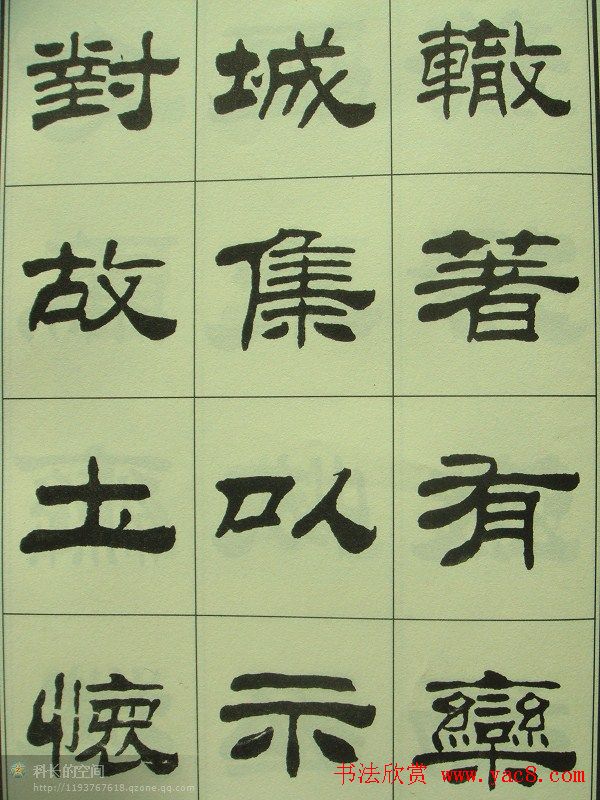 轍著有欒
城集以示
對故土懷
科长的空间
http://1193767618.qzone.qq.com/
书法欣赏 www.yac8.com